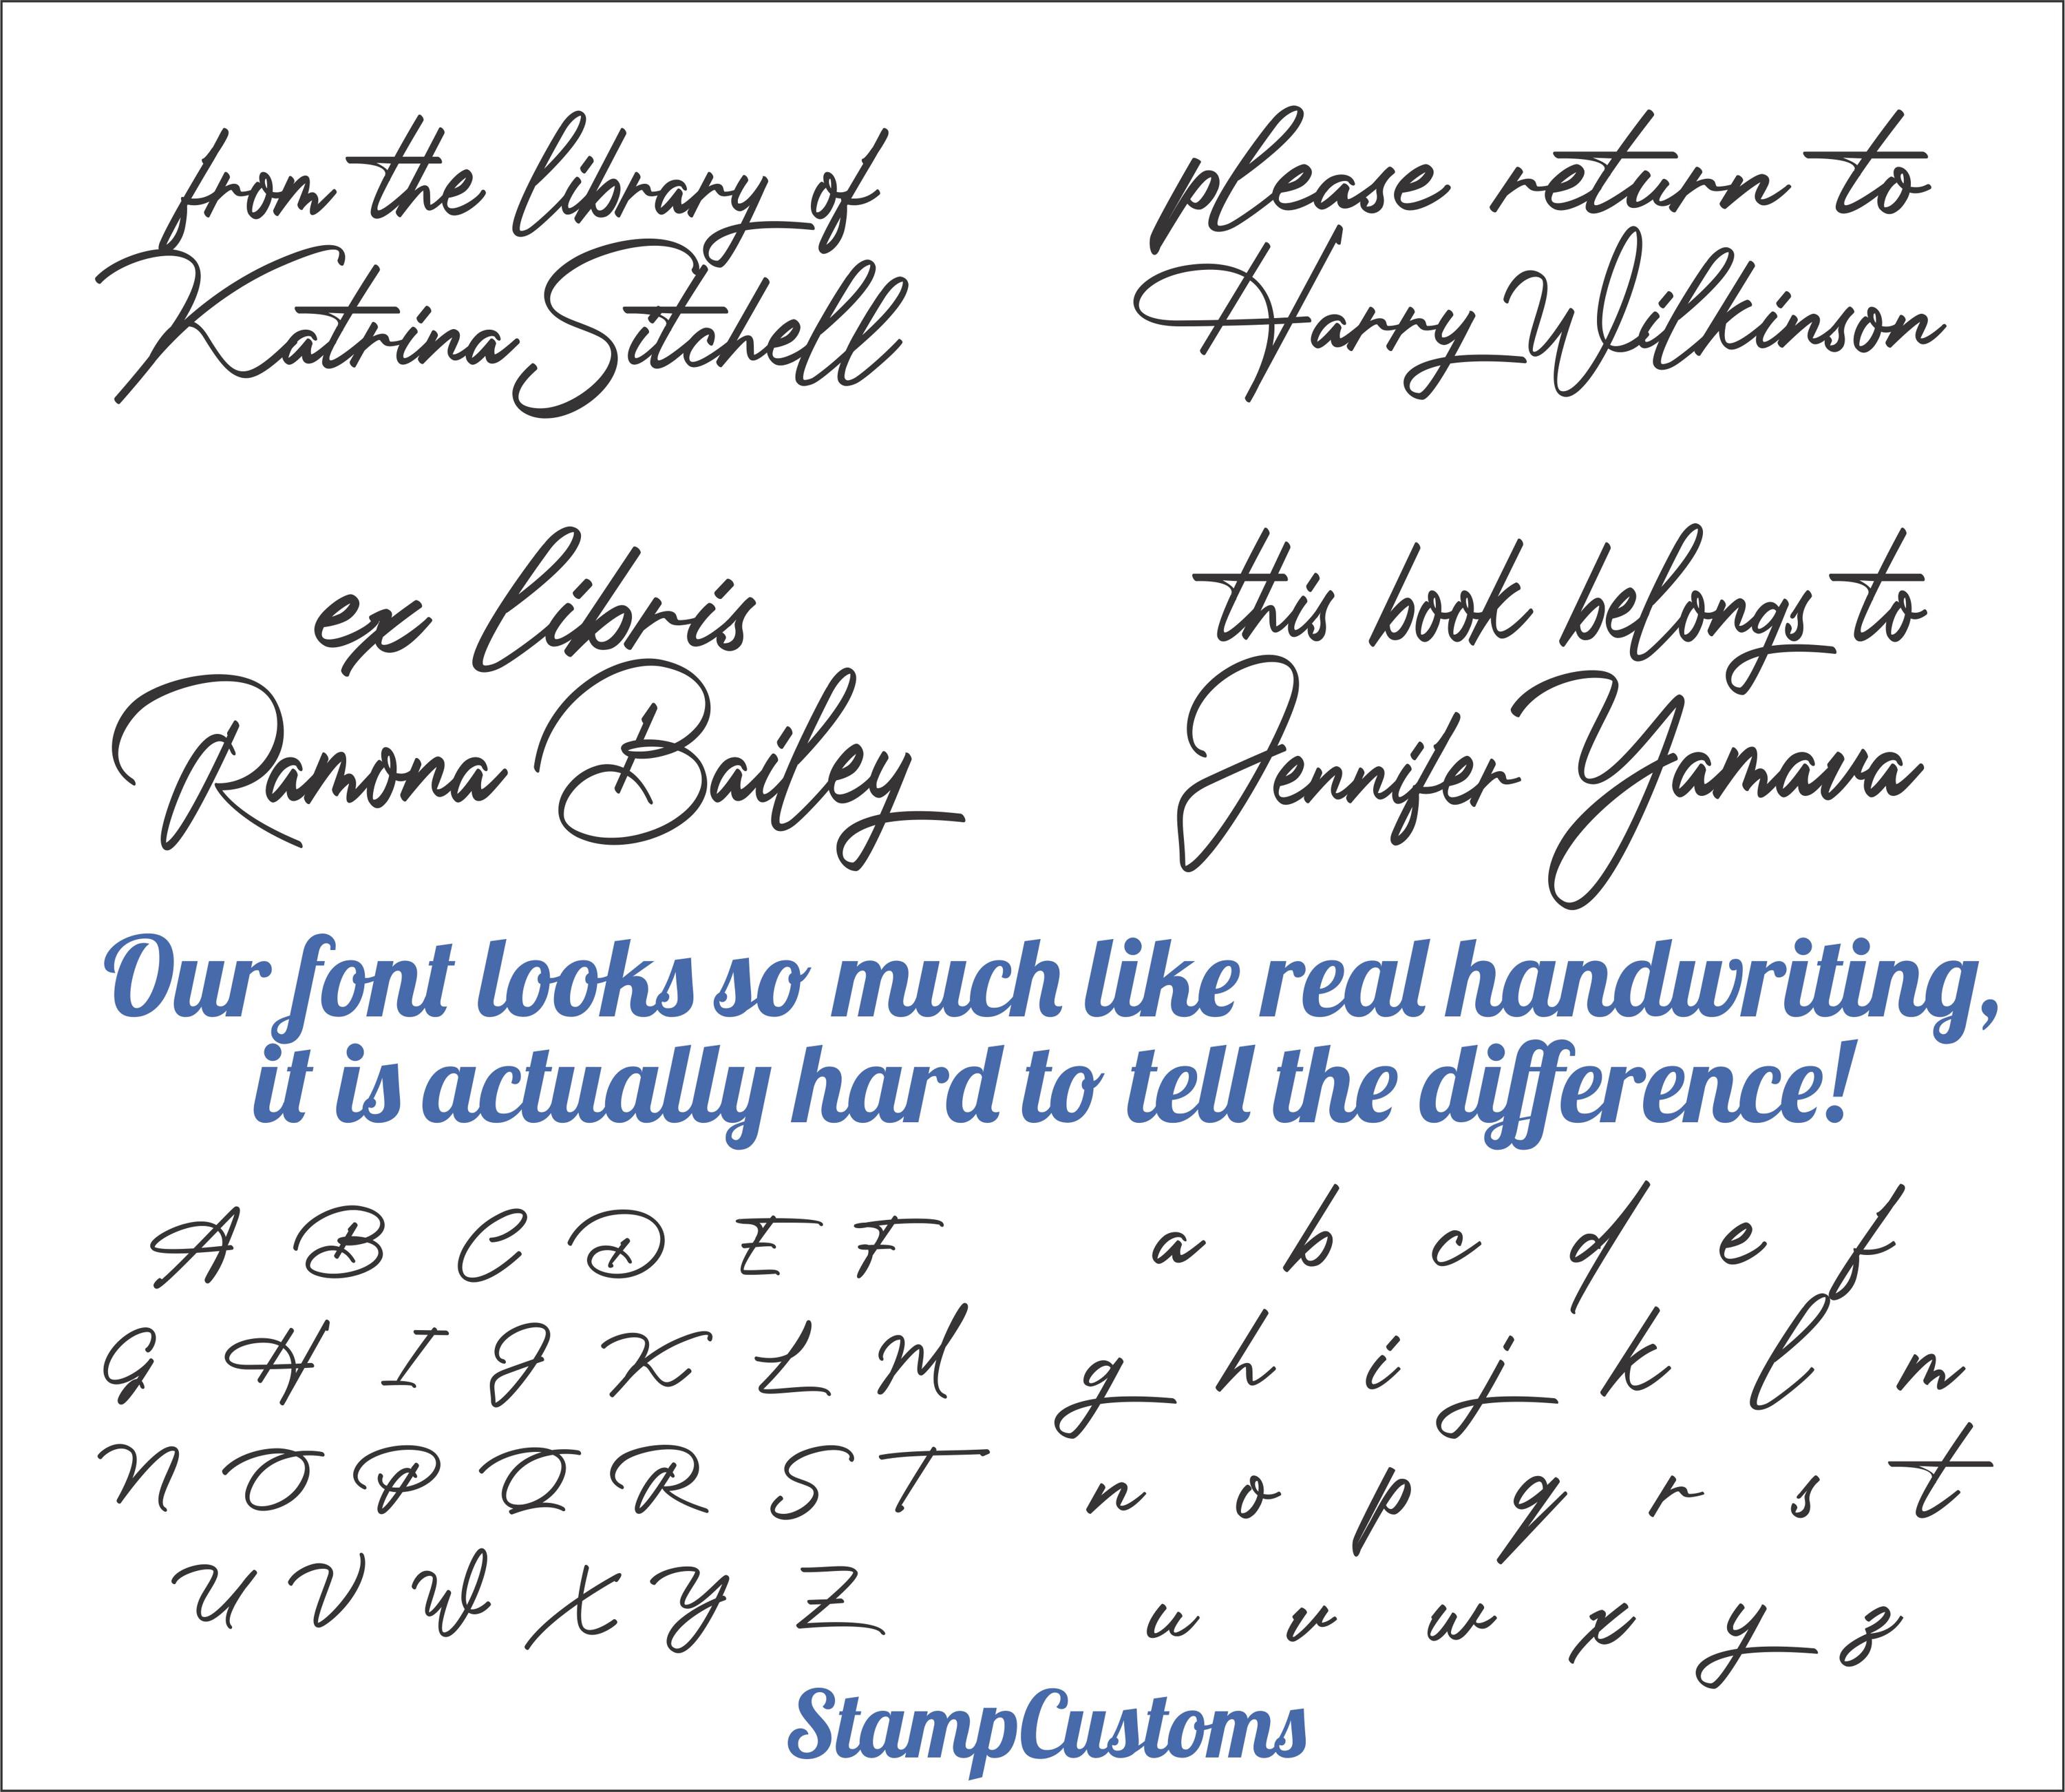 from the library of
Katrina Satchell
please return to
Harry Wilkinson
ex libris
Ramona Bailey
this book belongs to
Jennifer Yamava
Our font looks so much like real handwriting,
it is actually hard to tell the difference!
A B C D E F
G H I J K L M
N O P Q R S T
U V W X Y Z
a b c d e f
g h i j k l m
n o p q r s t
u v w x y z
StampCustoms